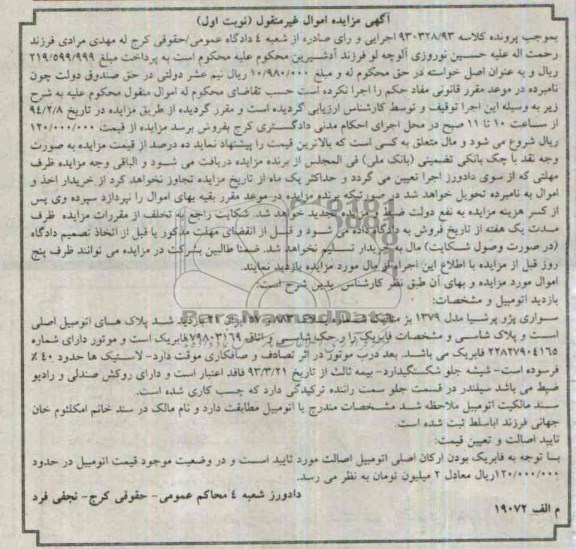 آگهی مزایده اموال غیرمنقول (نوبت اول)
بموجب پرونده کلاسه ۹۳۰۳۲۸/۹۳ اجرایی و رای صادره از شعبه ٤ دادگاه عمومی/حقوقی کرج له مهدی مرادی فرزند
رحمت اله علیه حسین نوروزی آلوچه لو فرزند آدشیرین محکوم علیه محکوم است به پرداخت مبلغ ۲۱۹/۵۹۹/۹۹۹
ریال و به عنوان اصل خواسته در حق محکوم له و مبلغ ۱۰/۹۸۰/۰۰۰ ریال نیم عشر دولتی در حق صندوق دولت چون
نامبرده در موعد مقرر قانونی مفاد حکم را اجرا نکرده است حسب تقاضای محکوم له اموال منقول محکوم علیه به شرح
زیر به وسیله این اجرا توقیف و توسط کارشناس ارزیابی گردیده است و مقرر گردیده از طریق مزایده در تاریخ ۹٤/۲/۸
از ساعت ۱۰ تا ۱۱ صبح در محل اجرای احکام مدنی دادگستری کرج بفروش برسد مزایده از قیمت ۱۲۰/۰۰۰/۰۰۰
ریال شروع می شود و مال متعلق به کسی است که بالاترین قیمت را پیشنهاد نماید ده درصد از قیمت مزایده به صورت
وجه نقد یا چک بانکی تضمینی (بانک ملی) فی المجلس از برنده مزایده دریافت می شود و الباقی وجه مزایده ظرف
مهلتی که از سوی دادورز اجرا تعیین می گردد و حداکثر یک ماه از تاریخ مزایده تجاوز نخواهد کرد از خریدار اخذ و
اموال به نامبرده تحویل خواهد شد در صورتیکه برنده مزایده در موعد مقرر بقیه بهای اموال را نپردازد سپرده وی پس
از کسر هزینه مزایده به نفع دولت ضبط و مزایده تجدید خواهد شد. شکایت راجع به تخلف از مقررات مزایده ظرف
مدت یک هفته از تاریخ فروش به دادگاه داده می شود و قبل از انقضای مهلت مذکور یا قبل از اتخاذ تصمیم دادگاه
(در صورت وصول شکایت) مال به خریدار تسلیم نخواهد شد. ضمنا طالبین بشرکت در مزایده می توانند ظرف پنج
روز قبل از مزایده با اطلاع این اجرا از مال مورد مزایده بازدید نمایند.
اموال مورد مزایده و بهای آن طبق نظر کارشناس بدین شرح است.
بازدید اتومبیل و مشخصات:
سواری پژو پرشیا مدل ۱۳۷۹ بژ متالیک شماره بازدید شد پلاک های اتومبیل اصلی
است و پلاک شاسی و مشخصات فابریک را و حک شاسی و اتاق ۷۹۸۰۳۱۶۹ فابریک است و موتور دارای شماره
۲۲۸۲۷۹۰٤۱۶۵ فابریک می باشد. بعد درب موتور در اثر تصادف و صافکاری موقت دارد- لاستیک ها حدود ٤۰ ٪
فرسوده است- شیشه جلو شکستگیدارد- بیمه ثالث از تاریخ ۹۳/۳/۲۱ فاقد اعتبار است و دارای روکش صندلی و رادیو
ضبط می باشد سیلندر در قسمت جلو سمت راننده ترکیدگی دارد که چسب کاری شده است.
سند مالکیت اتومبیل ملاحظه شد مشخصات مندرج با اتومبیل مطابقت دارد و نام مالک در سند خانم امکلثوم خان
جهانی فرزند اباسلط ثبت شده است.
تایید اصالت و تعیین قیمت:
با توجه به فابریک بودن ارکان اصلی اتومبیل اصالت مورد تایید است و در وضعیت موجود قیمت اتومبیل در حدود
۱۲۰/۰۰۰/۰۰۰ریال معادل ۲ میلیون تومان به نظر می رسد.
دادورز شعبه ٤ محاکم عمومی- حقوقی کرج- نجفی فرد
م الف ۱۹۰۷۲
ParsNamadData